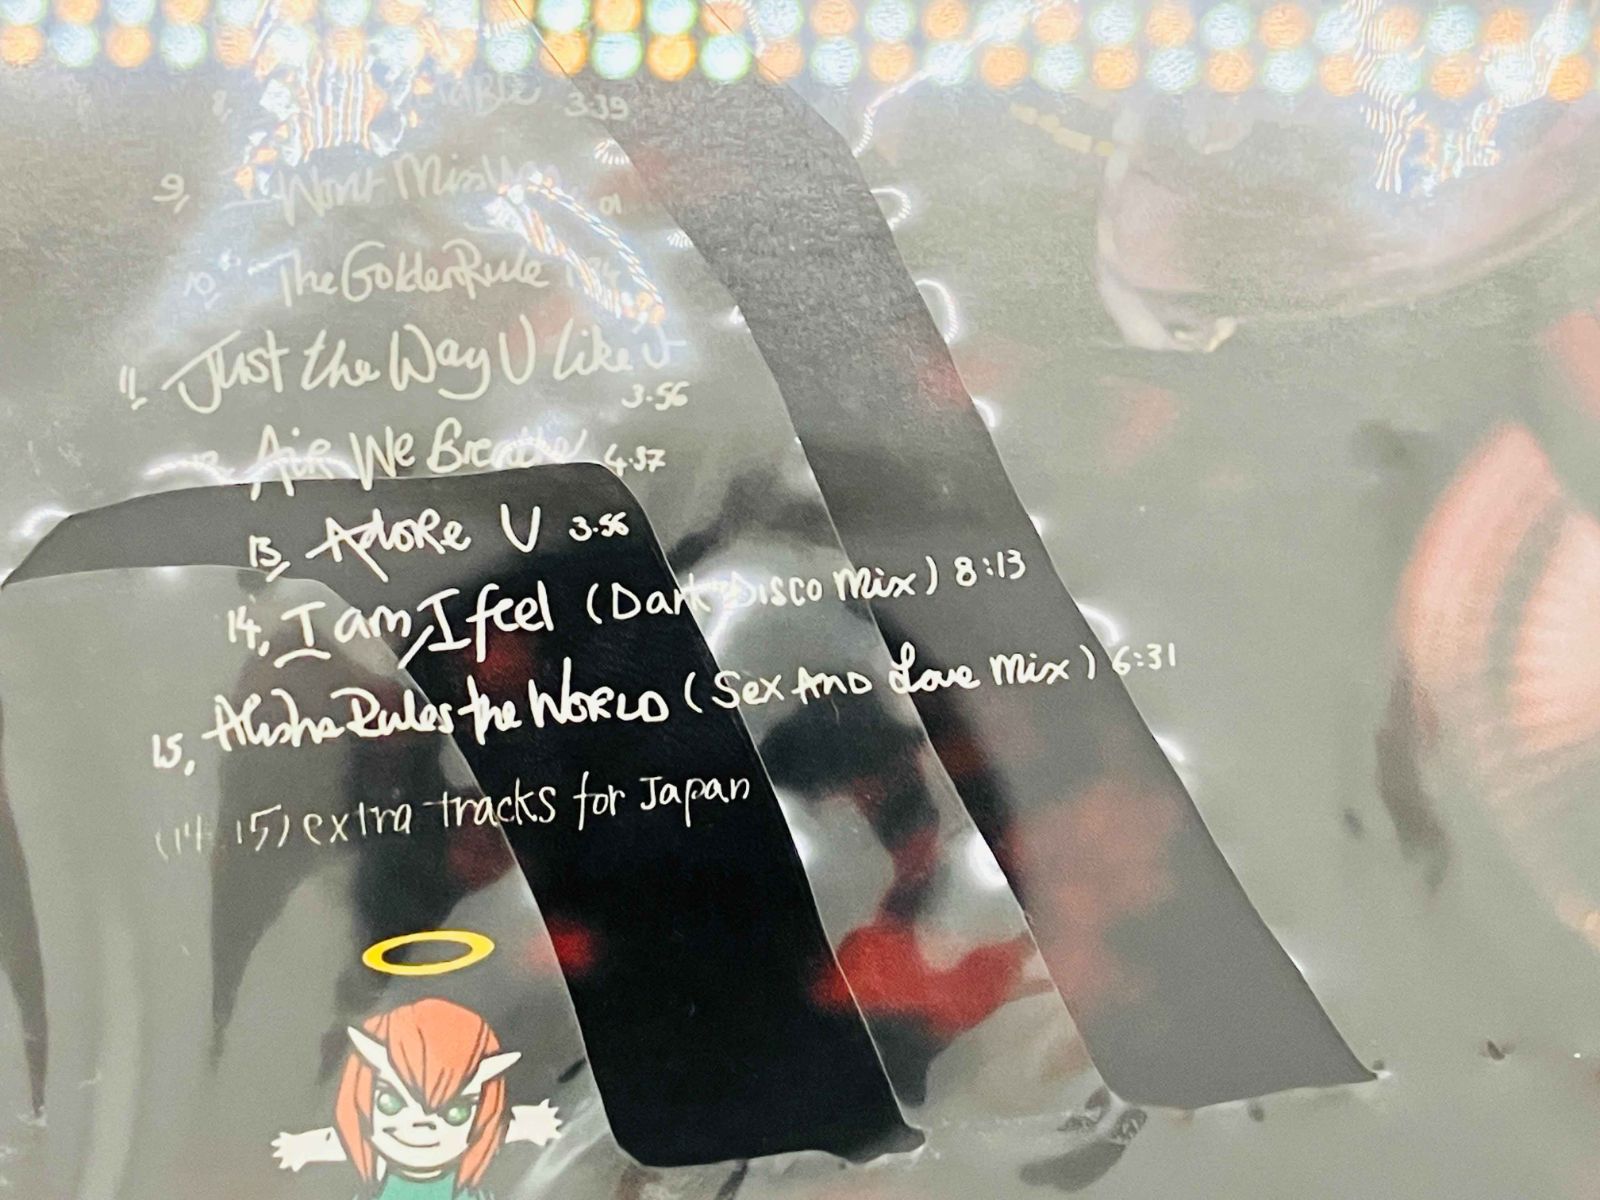 8. 3.39
9, Wont Miss
10. The Golden Rule
11. Just the Way U Like U
3.56
12. Air We Breathe 4.37
13, Adore U 3.56
14, I am, I feel (Dark Disco Mix) 8:13
15, Alisha Rules the WORLD (Sex AND Love Mix) 6:31
(14. 15) extra tracks for Japan